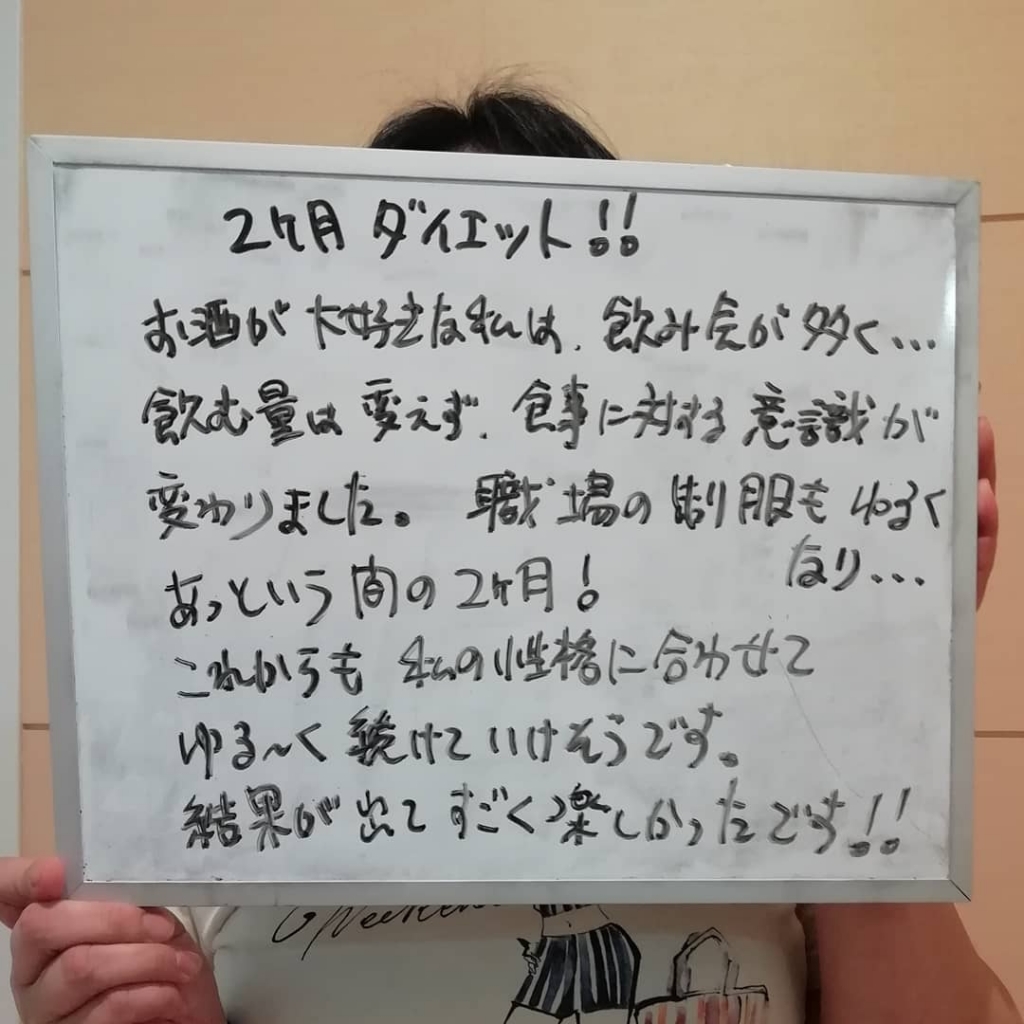 2ヶ月 ダイエット!!
お酒が大好きな私は、飲み会が多く...
飲む量は変えず、食事に対する意識が
変わりました。 職場の制服もゆるく
なり...
あっという間の2ヶ月!
これからも 私の性格に合わせて
ゆる〜く 続けていけそうです。
結果が出て すごく楽しかったです!!